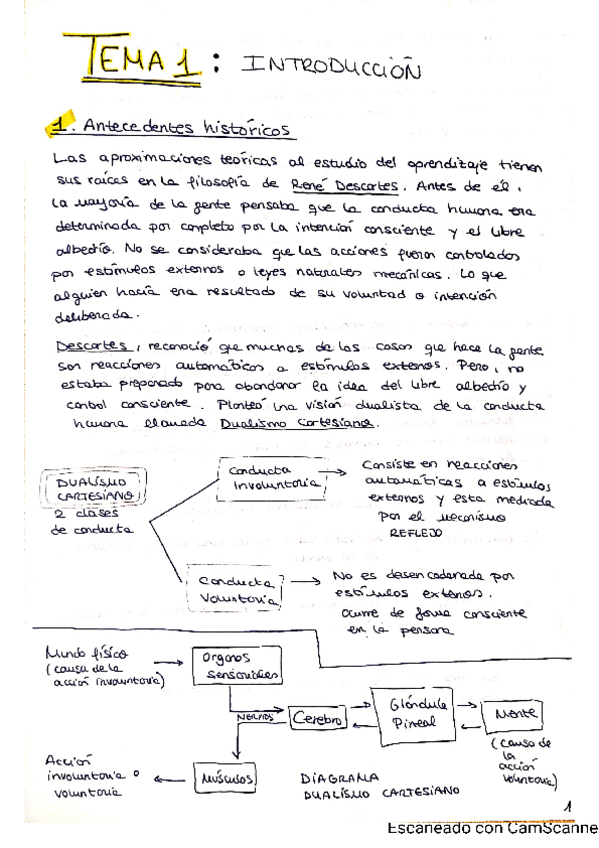 TEMA 1 : INTRODUCCIÓN
1. Antecedentes históricos
Las aproximaciones teóricas al estudio del aprendizaje tienen
sus raíces en la filosofía de René Descartes. Antes de él,
la mayoría de la gente pensaba que la conducta humana era
determinada por completo por la intención consciente y el libre
albedrío. No se consideraba que las acciones fueran controlados
por estímulos externos o leyes naturales mecánicas. Lo que
alguien hacía era resultado de su voluntad o intención
deliberada.
Descartes, reconoció que muchas de las cosas que hace la gente
son reacciones automáticas a estímulos externos. Pero, no
estaba preparado para abandonar la idea del libre albedrío y
control consciente. Planteó una visión dualista de la conducta
humana llamada Dualismo Cartesiano.
DUALISMO
CARTESIANO
2 clases
de conducta
Conducta
Involuntaria
Consiste en reacciones
automáticas a estímulos
externos y esta mediada
por el mecanismo
REFLEJO
Conducta
Voluntaria
No es desencadenada por
estímulos externos.
Ocurre de forma consciente
en la persona
Mundo físico
(causa de la
acción involuntaria)
Organos
sensoriales
NERVIOS
Cerebro
Glándula
Pineal
Mente
(causa de
la
acción
voluntaria)
Acción
involuntaria o
voluntaria
Músculos
DIAGRAMA
DUALISMO CARTESIANO
1
Escaneado con CamScanne